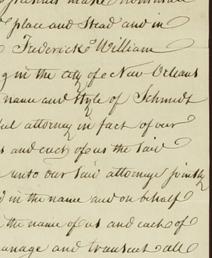 presents make nominate
place and Stead and in
Frederick William
g in the city of New Orleans
name and Style of Schmidt
ful attorney in fact of our
s and each of us the said
unto our said attorney jointly
d in the name and on behalf
the name of us and each of
manage and transact all